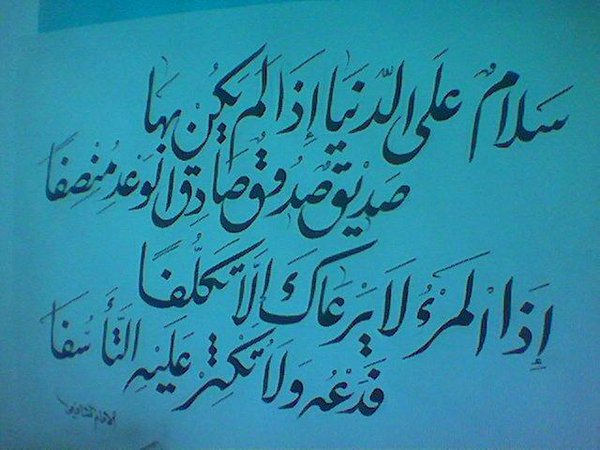 سَلَامٌ عَلَى الدُّنْيَا إِذَا لَمْ يَكُنْ بِهَا
صَدِيقٌ صَدُوقٌ صَادِقُ الْوَعْدِ مُنْصِفًا
إِذَا الْمَرْءُ لَا يَرْعَاكَ إِلَّا تَكَلُّفًا
فَدَعْهُ وَلَا تُكْثِرْ عَلَيْهِ التَّأَسُّفَا
الإمام الشافعي